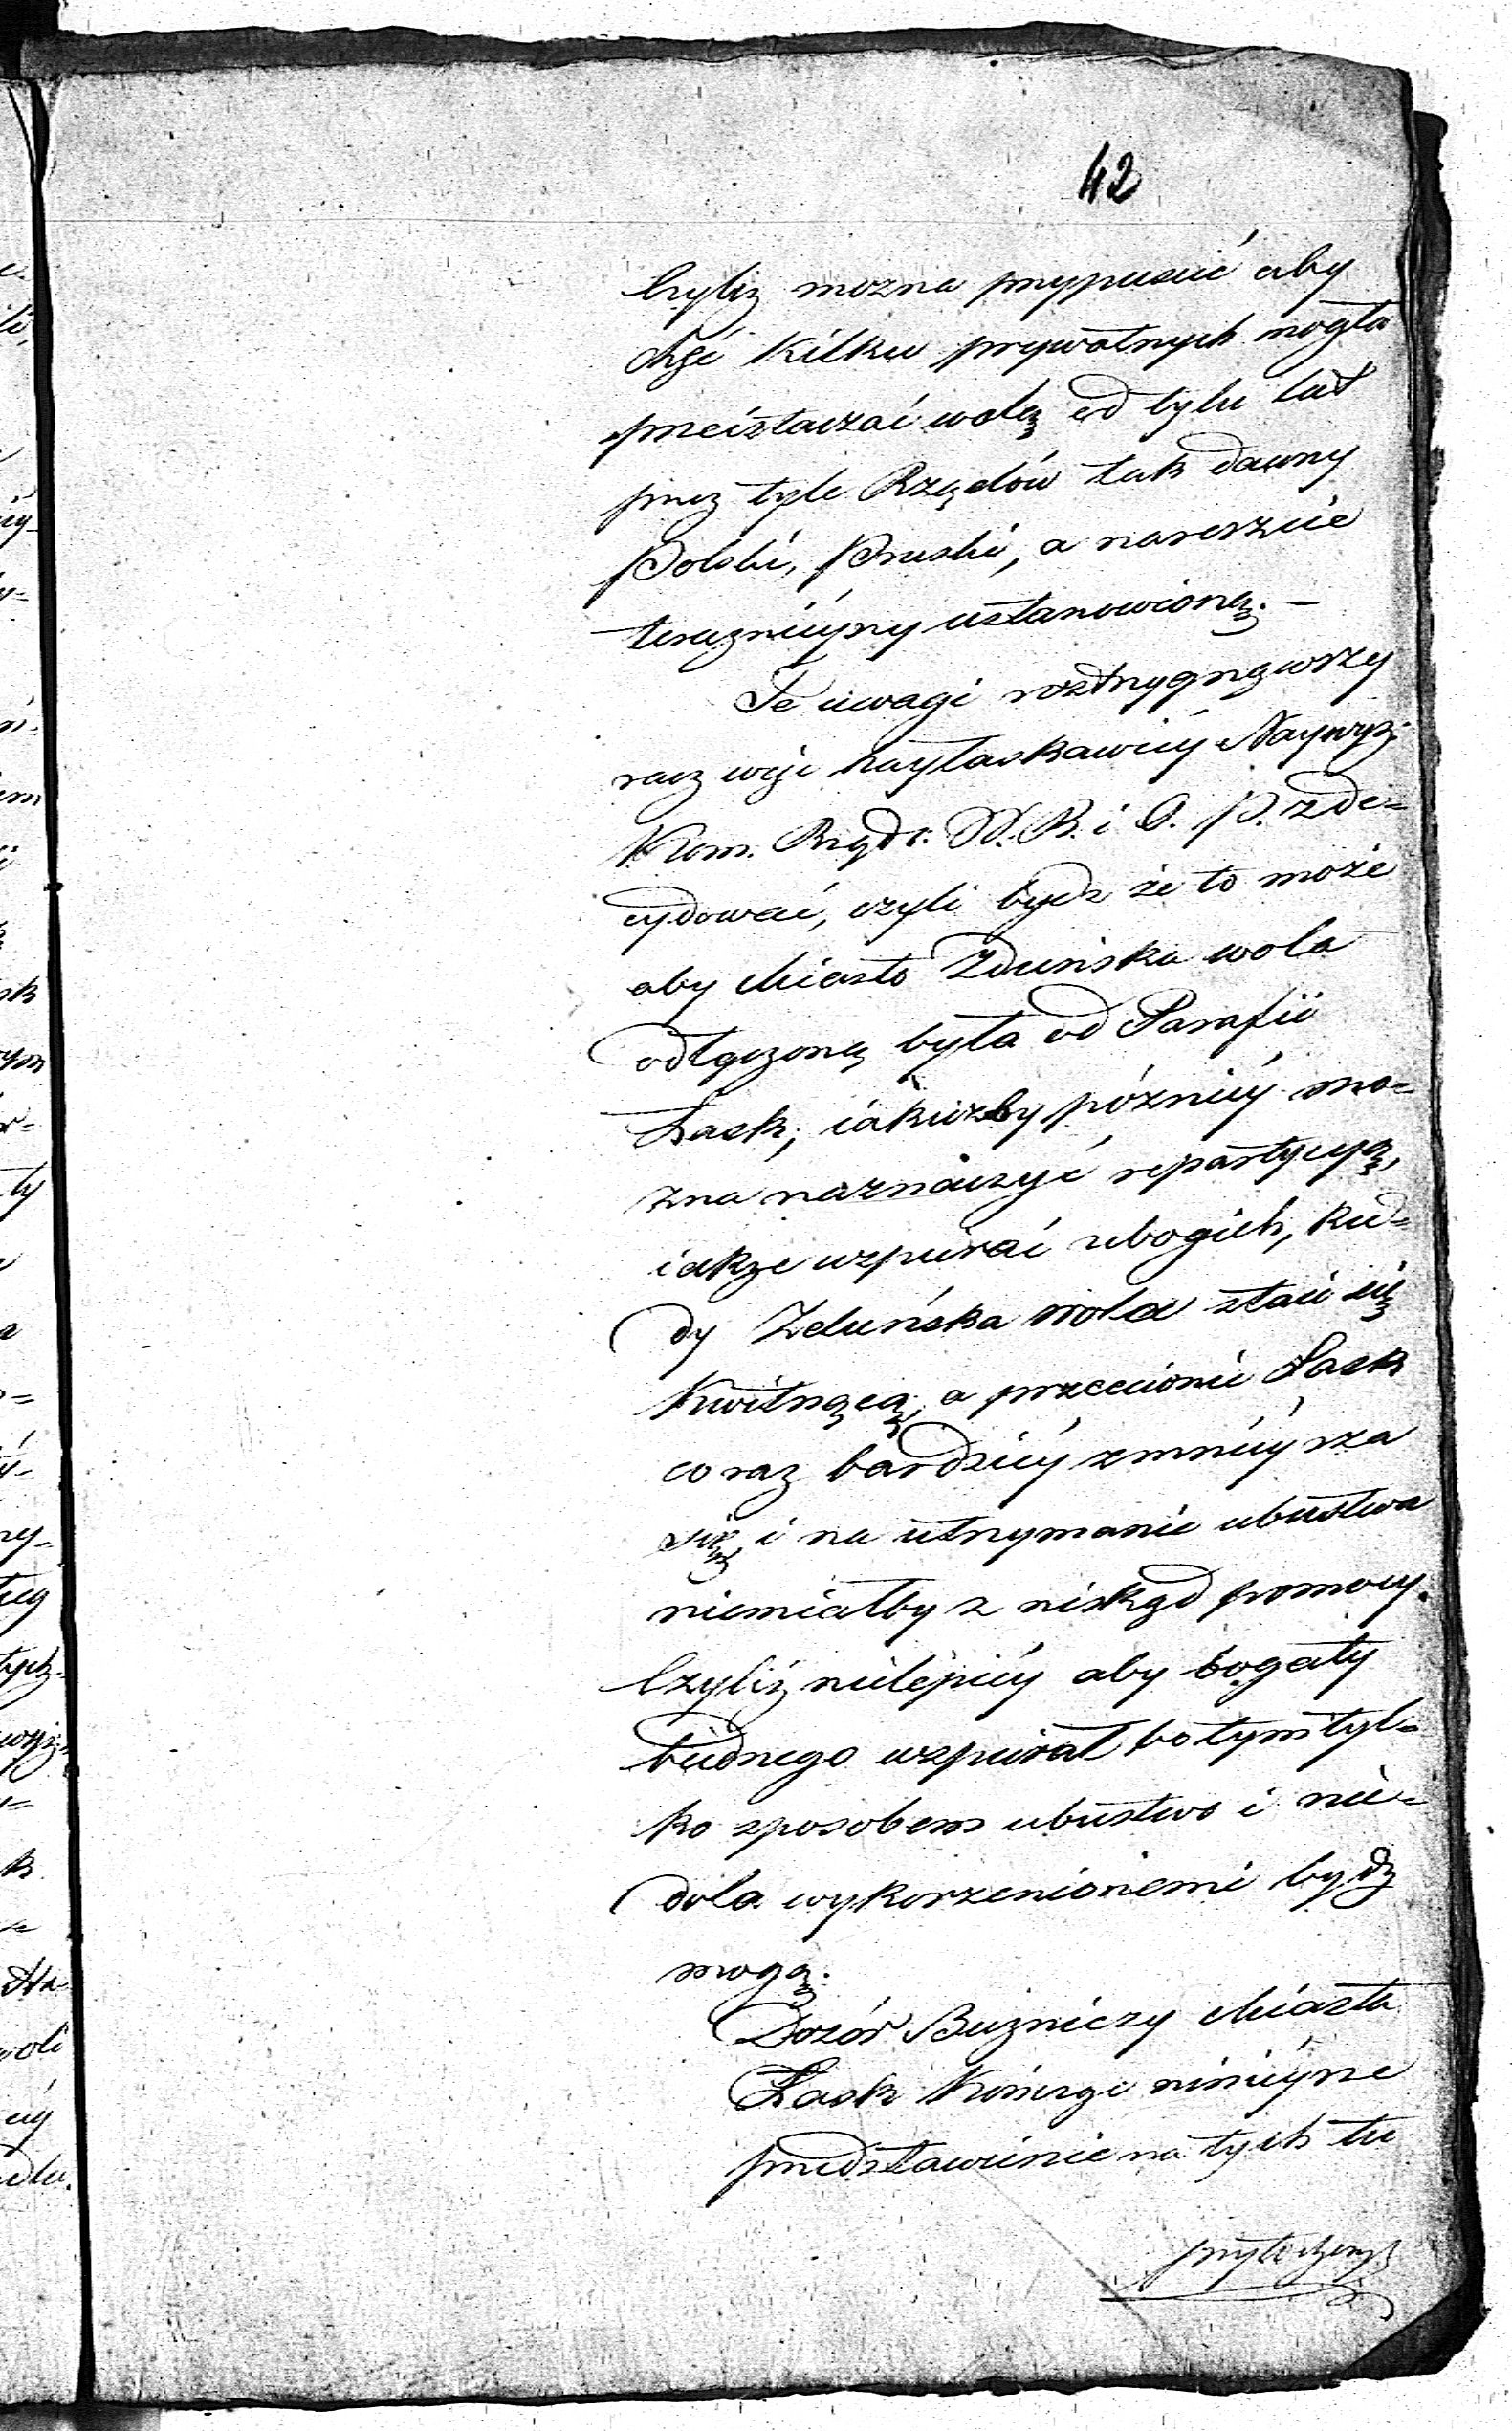 42
Czyliz mozna przypuscić aby
chęć kilku prywatnych mogła
przeistaczać wolą od tylu lat
przez tyle Rządów tak dawny
Polski, Pruski, a nareszcie
terazniéyszy ustanowioną. –
Te uwagi rostrzygnąwszy
racz więc nayłaskawiéy Naywyż.
Kom. Rządo. W. R. i O. P. zde=
cydować, czyli bydz że to może
aby Miasto Zduńska wola
odłączoną była od Parafii
Łask; iakiżby pózniéy mo=
zna naznaczyć repartycyą,
iakże wspierać ubogich, kie=
dy Zduńska wola staie się
kwitnącą, a przeciwnie Łask
coraz bardziéy zmniéysza
się, i na utrzymanie ubustwa
niemiałby z niskąd pomocy.
Czyliż nielepiéy aby bogaty
biednego wspierał bo tym tyl=
ko sposobem ubustwo i nie=
dola wykorzenionemi bydz
mogą.
Dozór Bużniczy Miasta
Łask kończąc ninieysze
przedstawienie na tych tu
przytoczonych